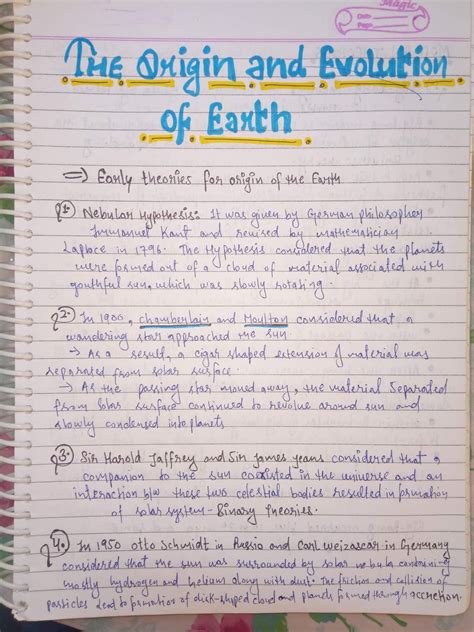 Magic
Date
Page
The Origin and Evolution
of Earth
⇒ Early theories for origin of the Earth
1. Nebular Hypothesis: It was given by German philosopher
Immanuel Kant and revised by mathematician
Laplace in 1796. The Hypothesis considered that the planets
were formed out of a cloud of material associated with
youthful sun, which was slowly rotating.
2. In 1900, Chamberlain and Moulton considered that a
wandering star approached the sun.
→ As a result, a cigar shaped extension of material was
separated from solar surface.
→ As the passing star moved away, the material separated
from Solar surface continued to revolve around sun and
slowly condensed into planets
3. Sir Harold Jaffrey and Sir James jeans considered that a
companion to the sun coexisted in the universe and an
interaction b/w these two celestial bodies resulted in formation
of solar system - Binary theories.
4. In 1950 Otto Schmidt in Russia and Carl weizascar in Germany
considered that the sun was surrounded by solar nebula containing
mostly hydrogen and helium along with dust. The friction and collision of
particles lead to formation of disk-shaped cloud and planets formed through accretion.